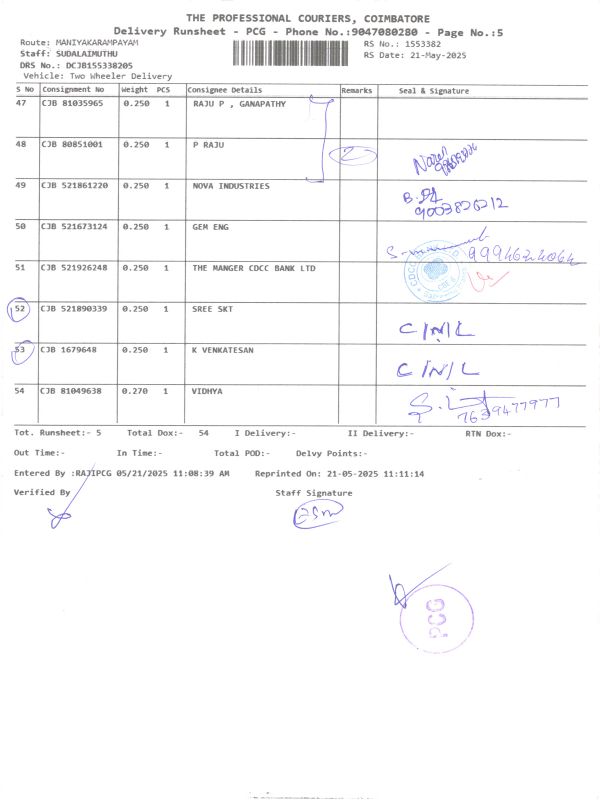 THE PROFESSIONAL COURIERS, COIMBATORE
Delivery Runsheet - PCG - Phone No.:9047080280 - Page No.:5
Route: MANIYAKARAMPAYAM RS No.: 1553382
Staff: SUDALAIMUTHU RS Date: 21-May-2025
DRS No.: DCJB155338205
Vehicle: Two Wheeler Delivery
S No Consignment No Weight PCS Consignee Details Remarks Seal & Signature
47 CJB 81035965 0.250 1 RAJU P , GANAPATHY
48 CJB 80851001 0.250 1 P RAJU 2
49 CJB 521861220 0.250 1 NOVA INDUSTRIES
9003826212
50 CJB 521673124 0.250 1 GEM ENG
51 CJB 521926248 0.250 1 THE MANGER CDCC BANK LTD
52 CJB 521890339 0.250 1 SREE SKT
C/N/L
53 CJB 1679648 0.250 1 K VENKATESAN
C/N/L
54 CJB 81049638 0.270 1 VIDHYA
7639477977
Tot. Runsheet:- 5 Total Dox:- 54 I Delivery:- II Delivery:- RTN Dox:-
Out Time:- In Time:- Total POD:- Delvy Points:-
Entered By :RAJIPCG 05/21/2025 11:08:39 AM Reprinted On: 21-05-2025 11:11:14
Verified By Staff Signature
PCG